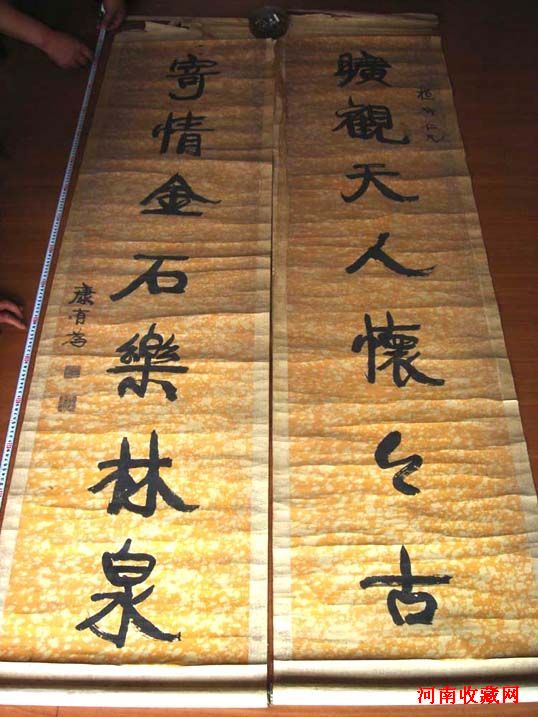 仁兄
曠觀天人懷今古
寄情金石樂林泉
康有為
河南收藏网